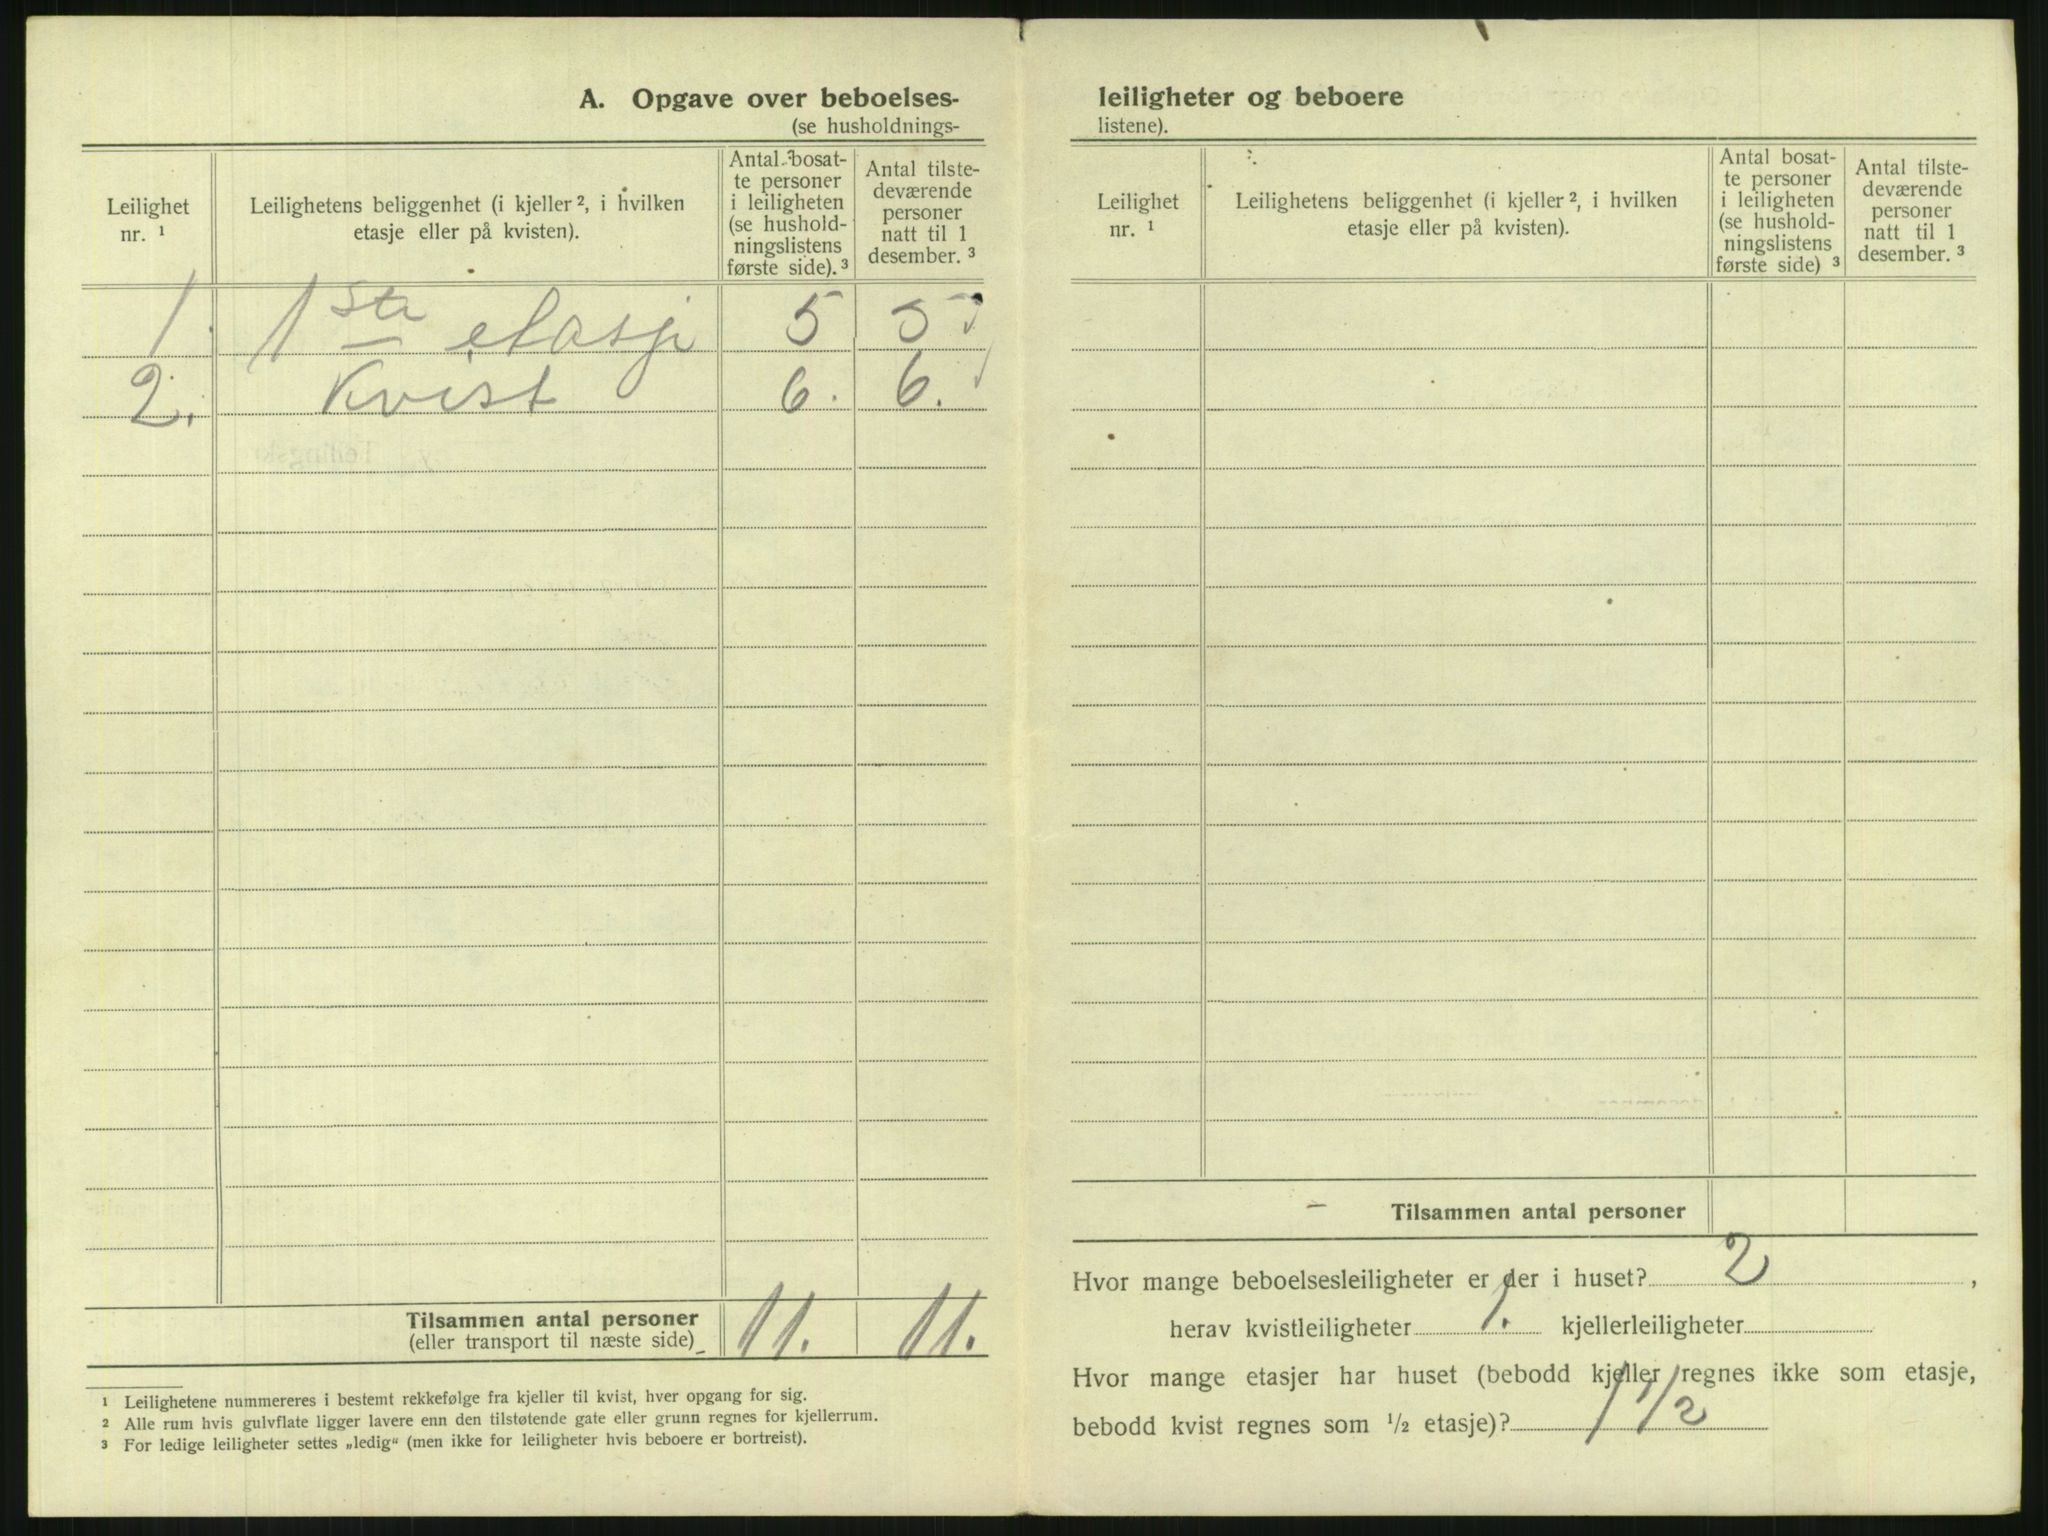 A. Opgave over beboelses-
(se husholdnings-
Leilighet
nr. ¹
Leilighetens beliggenhet (i kjeller ², i hvilken
etasje eller på kvisten).
Antal bosat-
te personer
i leiligheten
(se hushold-
ningslistens
første side). ³
Antal tilste-
deværende
personer
natt til 1
desember. ³
1. 1ste etasje 5 5
2. Kvist 6. 6.
Tilsammen antal personer
(eller transport til næste side)
11. 11.
¹ Leilighetene nummereres i bestemt rekkefølge fra kjeller til kvist, hver opgang for sig.
² Alle rum hvis gulvflate ligger lavere enn den tilstøtende gate eller grunn regnes for kjellerrum.
³ For ledige leiligheter settes „ledig“ (men ikke for leiligheter hvis beboere er bortreist).
leiligheter og beboere
listene).
Leilighet
nr. ¹
Leilighetens beliggenhet (i kjeller ², i hvilken
etasje eller på kvisten).
Antal bosat-
te personer
i leiligheten
(se hushold-
ningslistens
første side) ³
Antal tilste-
deværende
personer
natt til 1
desember. ³
Tilsammen antal personer
Hvor mange beboelsesleiligheter er der i huset? 2 ,
herav kvistleiligheter 1. kjellerleiligheter
Hvor mange etasjer har huset (bebodd kjeller regnes ikke som etasje,
bebodd kvist regnes som ½ etasje)? 1 1/2